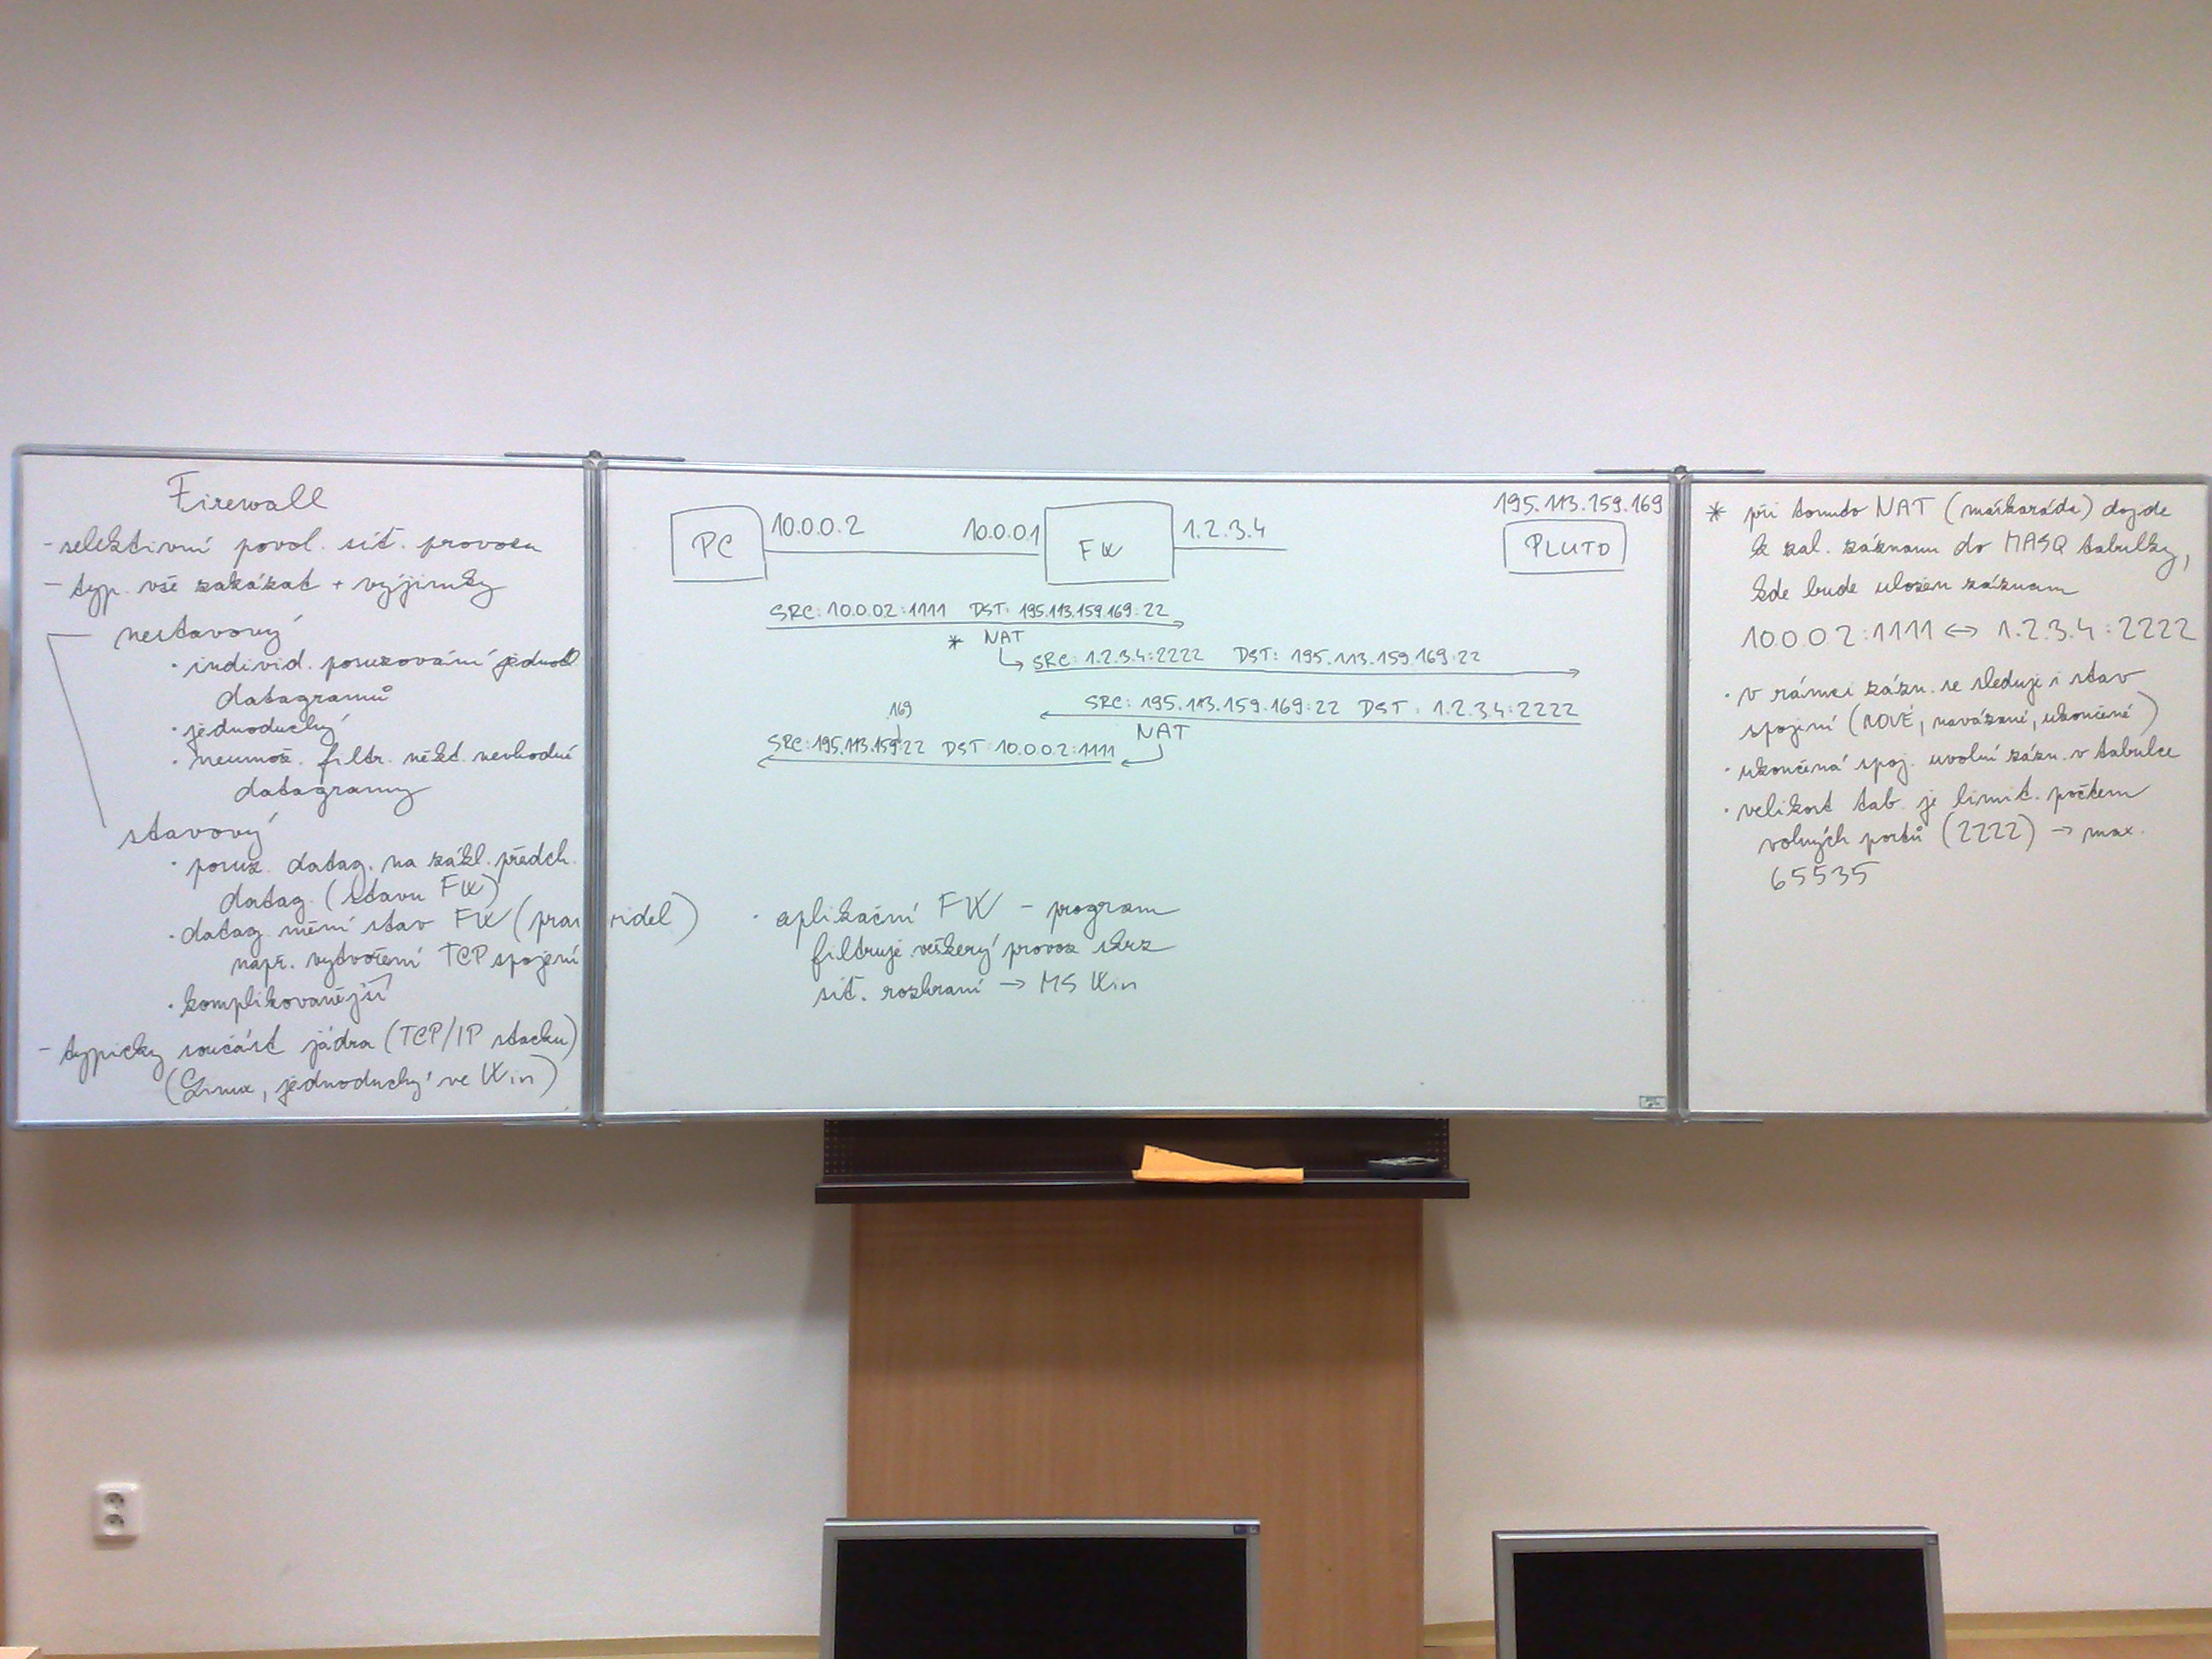 Firewall
- selektivní povol. síť. provozu
- typ. vše zakázat + výjimky
nestavový
· individ. posuzování jednotl
datagramů
· jednoduchý
· neumož. filtr. někt. nevhodné
datagramy
stavový
· posuz. datag. na zákl. předch.
datag. (stavu FW)
· datag. mění stav FW (prav idel)
např. vytvoření TCP spojení
· komplikovanější
- typicky součást jádra (TCP/IP stacku)
(Linux, jednoduchý ve Win)
PC 10.0.0.2 10.0.0.1 FW 1.2.3.4
195.113.159.169
PLUTO
SRC: 10.0.0.2:1111 DST: 195.113.159.169:22
* NAT
SRC: 1.2.3.4:2222 DST: 195.113.159.169:22
SRC: 195.113.159.169:22 DST: 1.2.3.4:2222
NAT
.169
SRC: 195.113.159:22 DST: 10.0.0.2:1111
· aplikační FW - program
filtruje veškerý provoz skrz
síť. rozhraní → MS Win
* při tomto NAT (maškaráda) dojde
k zal. záznamu do MASQ tabulky,
kde bude uložen záznam
10.0.0.2:1111 ↔ 1.2.3.4:2222
· v rámci zázn. se sleduje i stav
spojení (NOVÉ, navázané, ukončené)
· ukončená spoj. uvolní zázn. v tabulce
· velikost tab. je limit. počtem
volných portů (2222) → max.
65535